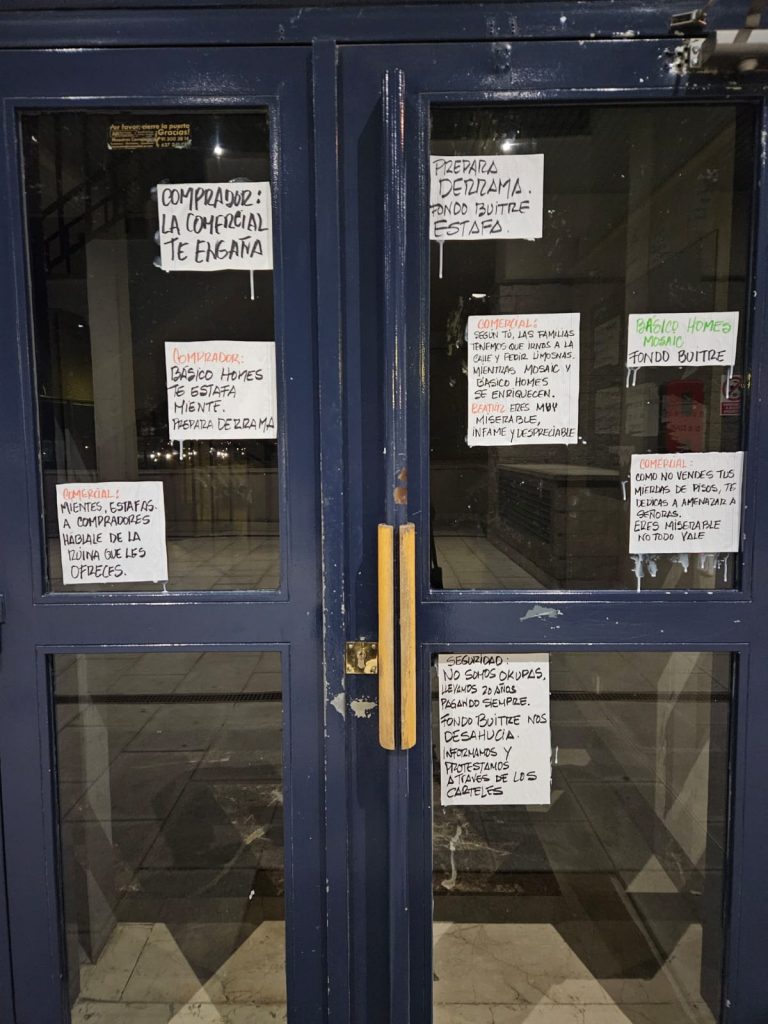 Por favor, cierre la puerta
¡Gracias!
COMPRADOR:
LA COMERCIAL
TE ENGAÑA
COMPRADOR:
BÁSICO HOMES
TE ESTAFA
MIENTE.
PREPARA DERRAMA
COMERCIAL:
MIENTES, ESTAFAS.
A COMPRADORES
HÁBLALE DE LA
RUINA QUE LES
OFRECES.
PREPARA
DERRAMA.
FONDO BUITRE
ESTAFA.
COMERCIAL:
SEGÚN TÚ, LAS FAMILIAS
TENEMOS QUE IRNOS A LA
CALLE Y PEDIR LIMOSNAS.
MIENTRAS MOSAIC Y
BÁSICO HOMES
SE ENRIQUECEN.
BEATRIZ ERES MUY
MISERABLE,
INFAME Y DESPRECIABLE
BÁSICO HOMES
MOSAIC
FONDO BUITRE
COMERCIAL:
COMO NO VENDES TUS
MIERDAS DE PISOS, TE
DEDICAS A AMENAZAR A
SEÑORAS.
ERES MISERABLE
NO TODO VALE
SEGURIDAD:
NO SOMOS OKUPAS,
LLEVAMOS 20 AÑOS
PAGANDO SIEMPRE.
FONDO BUITRE NOS
DESAHUCIA.
INFORMAMOS Y
PROTESTAMOS
A TRAVES DE LOS
CARTELES